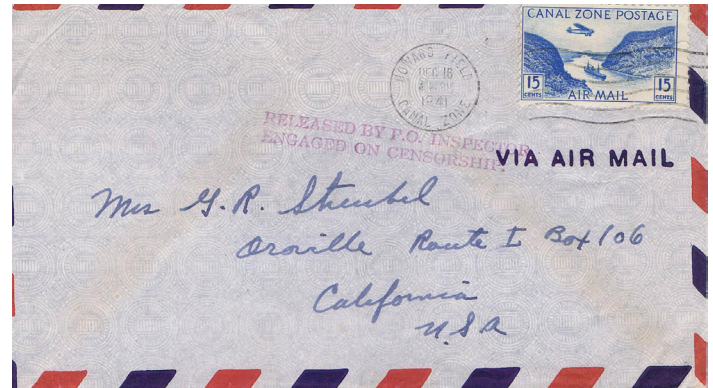 CANAL ZONE POSTAGE
15 CENTS AIR MAIL 15 CENTS
HOWARD FIELD
DEC 16
1941
CANAL ZONE
RELEASED BY P.O. INSPECTOR
ENGAGED ON CENSORSHIP.
VIA AIR MAIL
Mrs G. R. Streubel
Oroville Route I Box 106
California
U.S.A